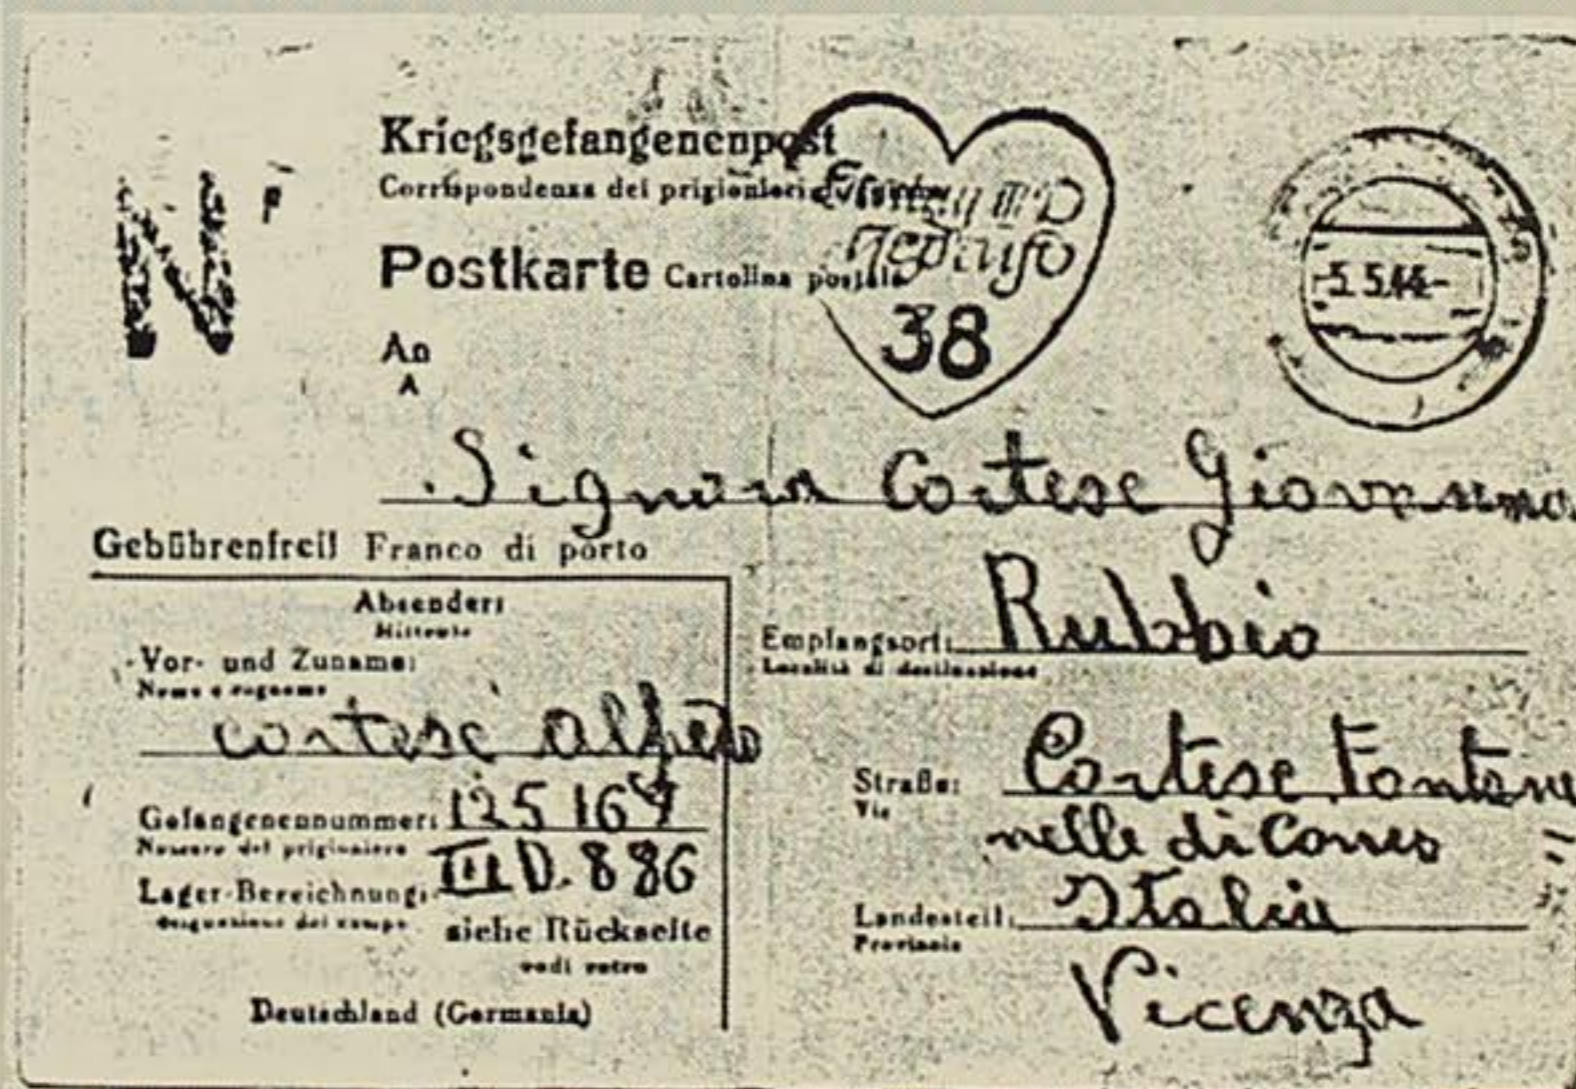 Kriegsgefangenenpost
Corrispondenza dei prigionieri
Postkarte Cartolina postale
Stalag III D
Geprüft
38
5.5.44
N
An
A
Signora Cortese Giovanna
Gebührenfrei! Franco di porto
Absender:
Mittente
Vor- und Zuname:
Nome e cognome
cortese alfredo
Gefangenennummer: 125164
Numero del prigioniero
Lager-Bezeichnung: III D. 886
designazione del campo
siehe Rückseite
vedi retro
Deutschland (Germania)
Empfangsort: Rubbio
Località di destinazione
Straße: Cortese Fontane
Via
nelle di Conco
Landesteil: Italia
Provincia
Vicenza